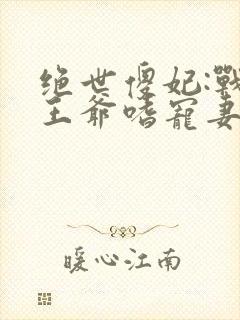 绝世傻妃:战
王爷嗜宠妻
暖心江南